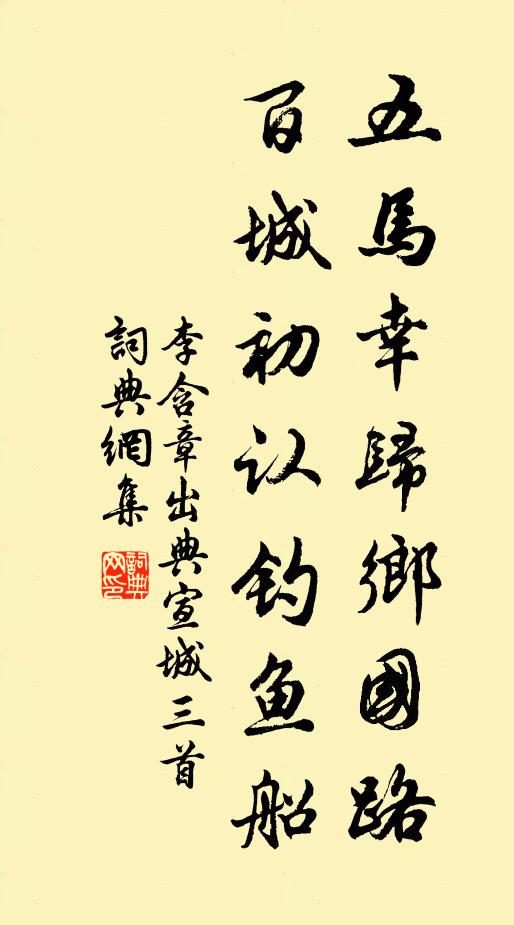 五馬幸歸鄉國路
百城初认钓鱼船
李含章出典宣城三首
詞典網集
詞典
网印